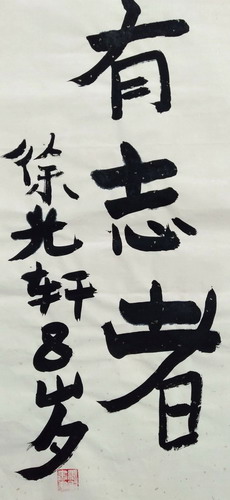 有志者
徐光轩8岁